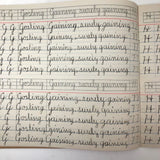 G G Gosling Gaining surely gaining H
G G Gosling Gaining, surely, gaining. H H
G G Gosling. Gaining, surely gaining. H H
G G Gosling. Gaining, surely gaining. H H
G G Gosling. Gaining, surely, gaining. H H
G G Gosling Gaining surely gaining H
G G Gosling. Gaining, surely gaining. H H
G G Gosling. Gaining, surely, gaining. H H
G G Gosling. Gaining, surely, gaining. H H
G G Gosling. Gaining, surely, gaining. H H